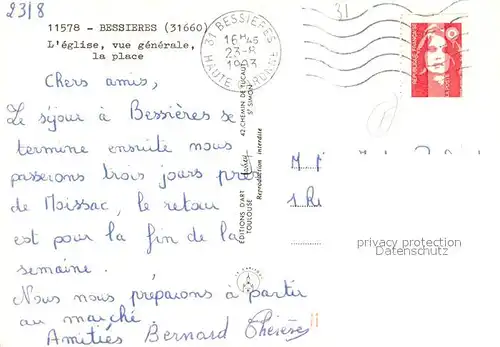 23/8
31
11578 - BESSIERES (31660)
L'église, vue générale,
la place
31 BESSIERES
16H45
23-8
1993
HAUTE GARONNE
REPUBLIQUE FRANÇAISE
Chers amis,
Le séjour à Bessières se
termine ensuite nous
passerons trois jours près
de Moissac, le retour
est pour la fin de la
semaine.
Nous nous preparons à partir
au marché
Amitiés Bernard Thérèse
EDITIONS D'ART
TOULOUSE
42, CHEMIN DE TUCAUT
ST SIMON
Reproduction interdite
privacy protection
Datenschutz